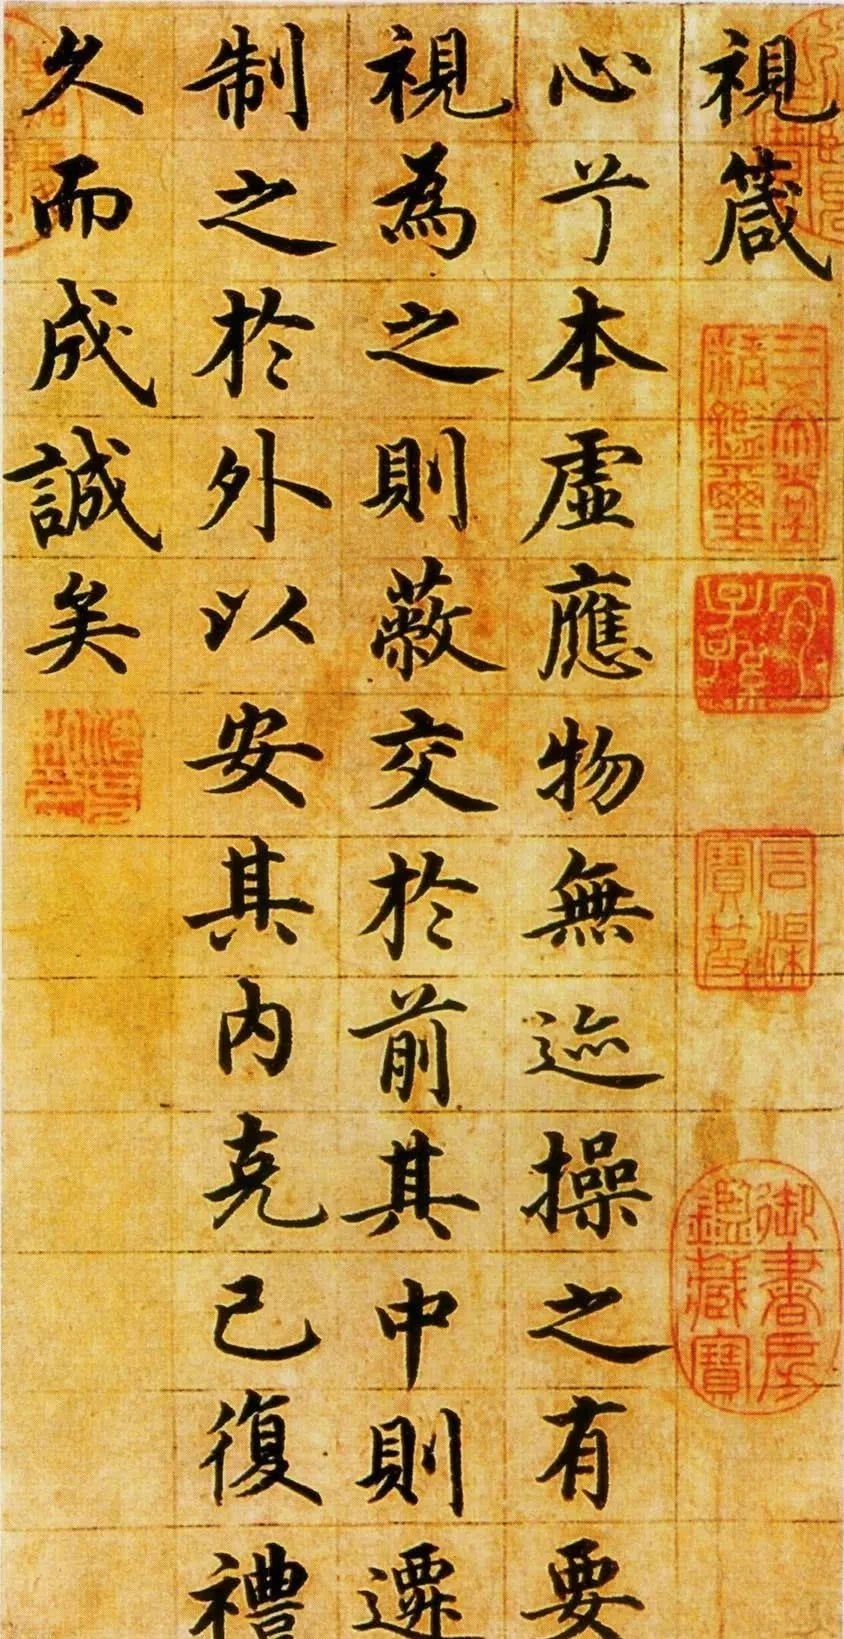 視箴
心兮本虛應物無迹操之有要
視為之則蔽交於前其中則遷
制之於外以安其內克己復禮
久而成誠矣
三希堂精鑑璽
宜子孫
御書房鑑藏寶